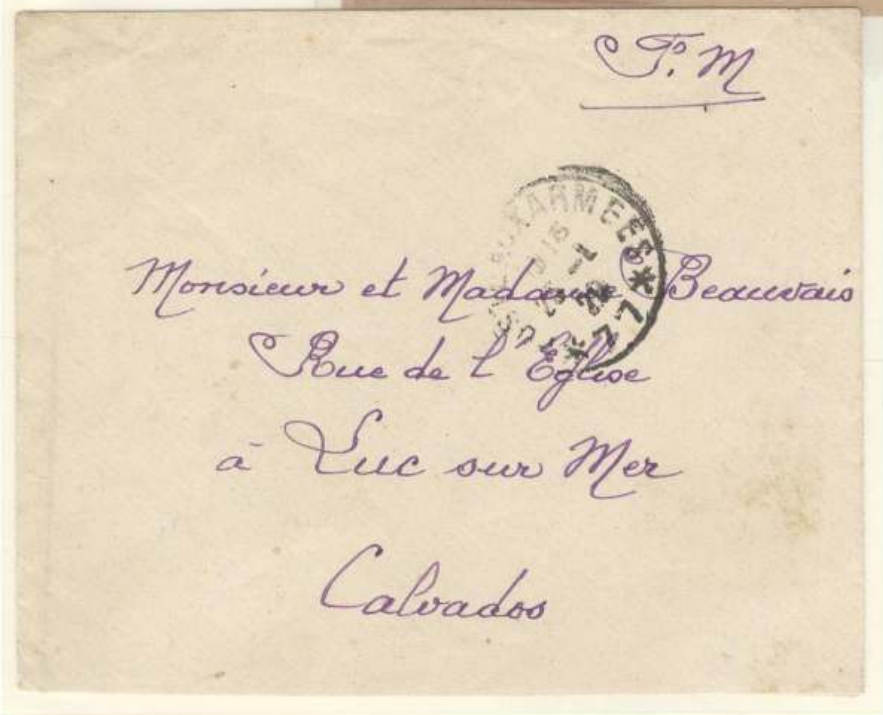 F. M
AUX ARMEES * 77 *
Monsieur et Madame Beauvais
Rue de l'Eglise
à Luc sur Mer
Calvados